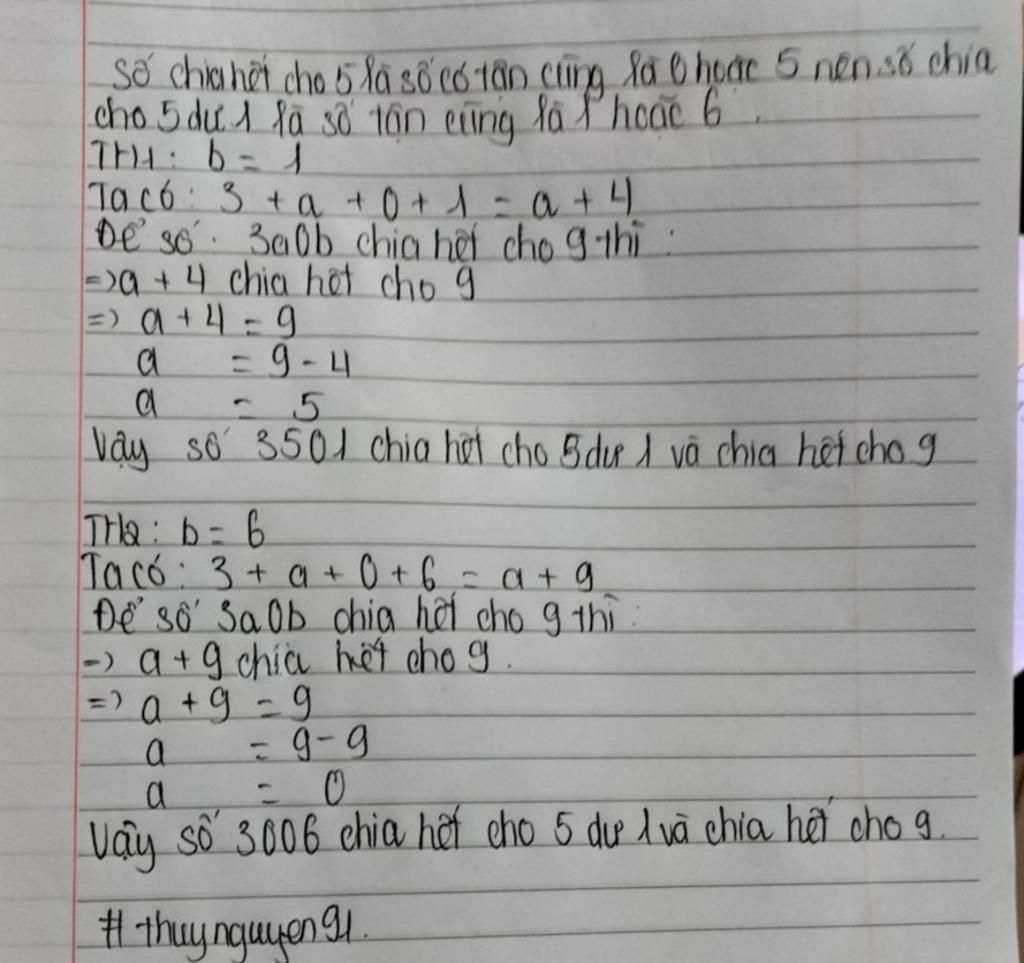 Số chia hết cho 5 là số có tận cùng là 0 hoặc 5 nên số chia
cho 5 dư 1 là số tận cùng là 1 hoặc 6.
TH1: b = 1
Ta có: 3 + a + 0 + 1 = a + 4
Để số 3a0b chia hết cho 9 thì:
=> a + 4 chia hết cho 9
=> a + 4 = 9
a = 9 - 4
a = 5
Vậy số 3501 chia hết cho 5 dư 1 và chia hết cho 9
TH2: b = 6
Ta có: 3 + a + 0 + 6 = a + 9
Để số 3a0b chia hết cho 9 thì:
=> a + 9 chia hết cho 9.
=> a + 9 = 9
a = 9 - 9
a = 0
Vậy số 3006 chia hết cho 5 dư 1 và chia hết cho 9.
# thuynguyen91.